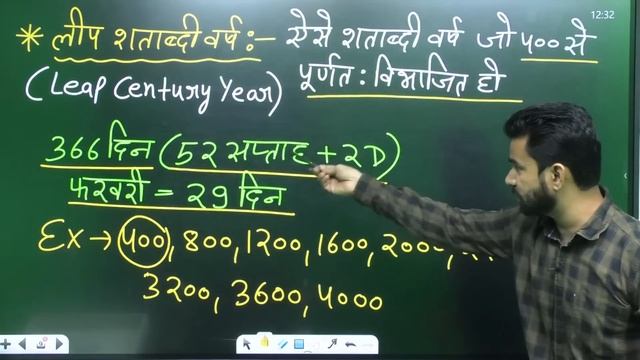 12:32
* लीप शताब्दी वर्ष :- ऐसे शताब्दी वर्ष जो ४०० से
(Leap Century Year) पूर्णत: विभाजित हो
366 दिन (५२ सप्ताह + २D)
फरवरी = २९ दिन
Ex → ४००, 800, 1200, 1600, 2000,
3200, 3600, 4000